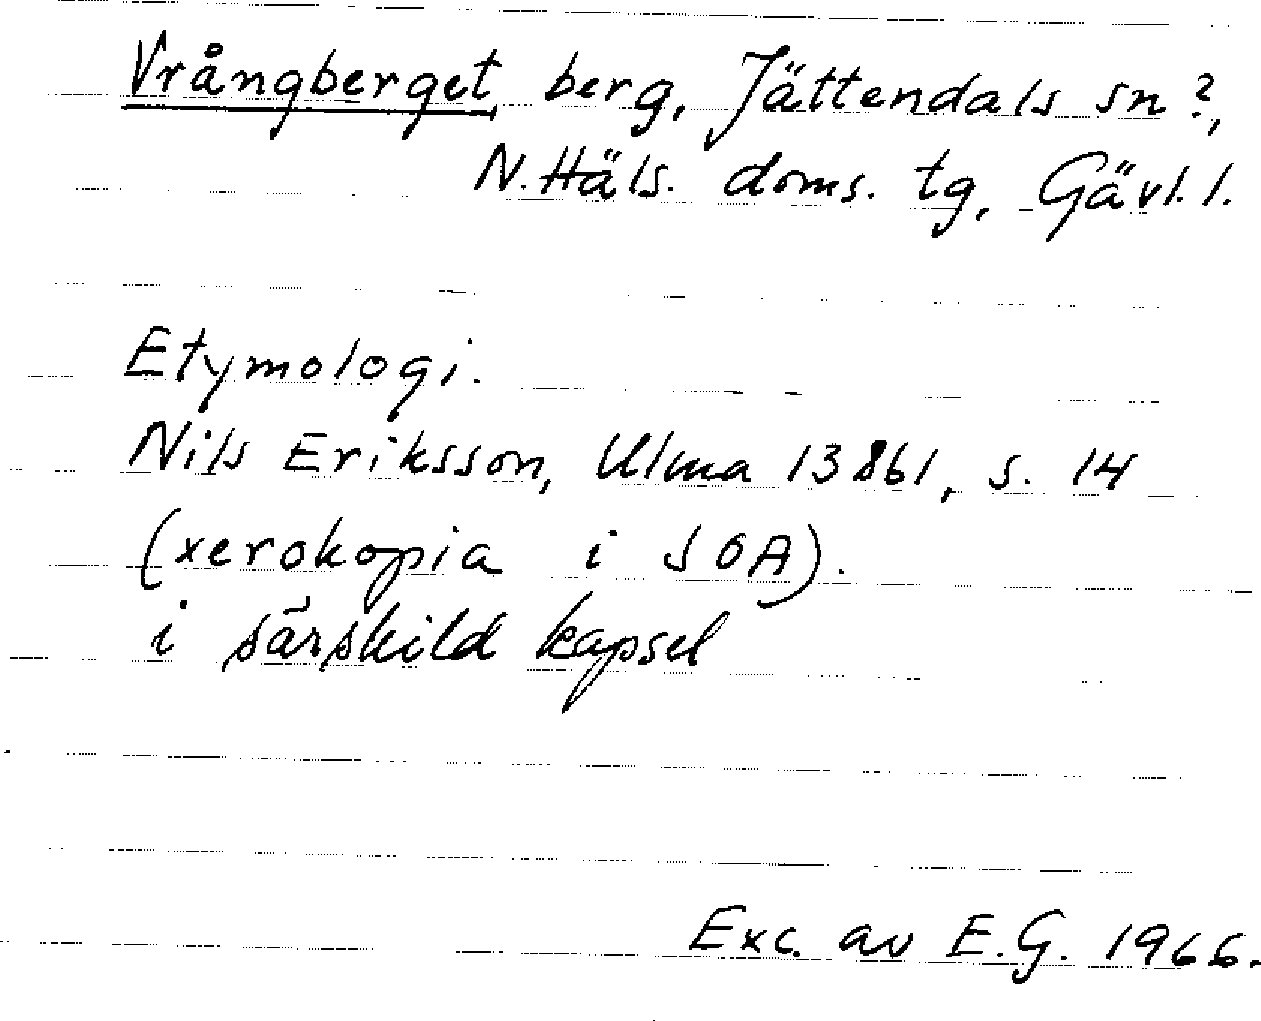 Vrångberget berg, Jättendals sn?,
N. Häls. doms. tg, Gävl. l.
Etymologi.
Nils Eriksson, Ulma 13861, s. 14
(xerokopia i SOA).
i särskild kapsel
Exc. av E.G. 1966.